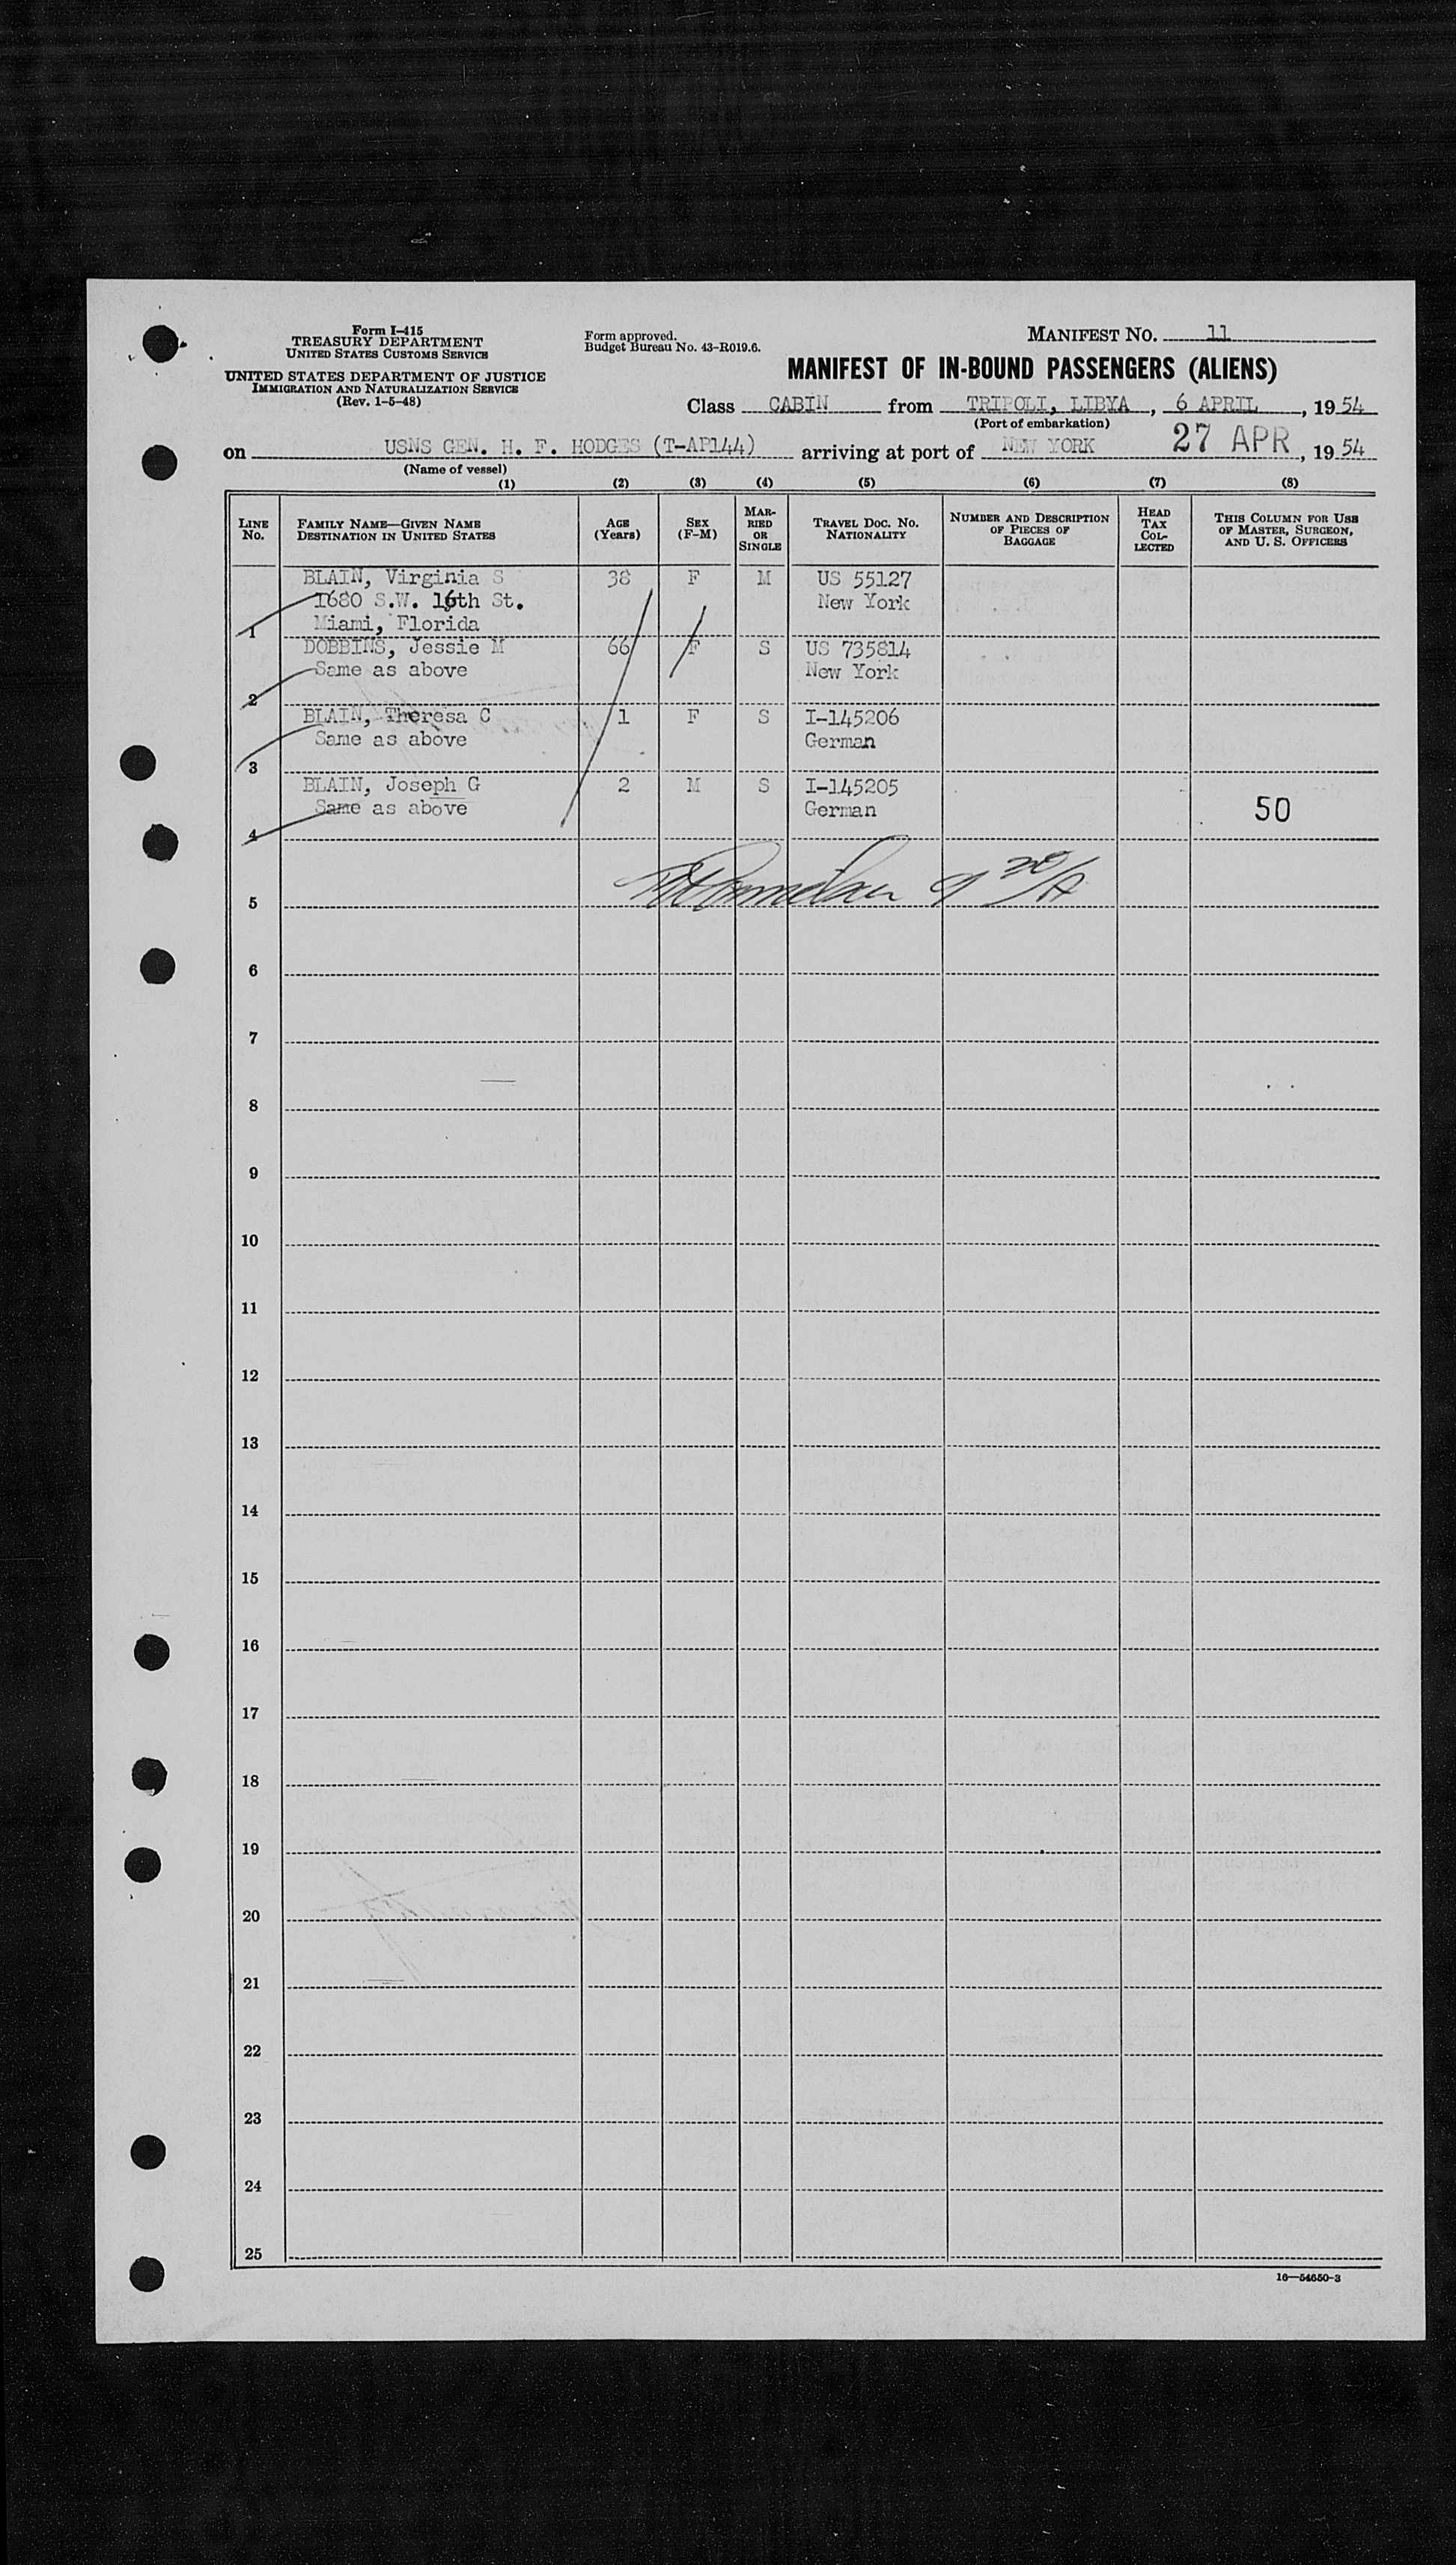 Form I-415
TREASURY DEPARTMENT
UNITED STATES CUSTOMS SERVICE
UNITED STATES DEPARTMENT OF JUSTICE
IMMIGRATION AND NATURALIZATION SERVICE
(Rev. 1-5-48)
Form approved.
Budget Bureau No. 43-R019.6.
MANIFEST NO. 11
MANIFEST OF IN-BOUND PASSENGERS (ALIENS)
Class CABIN from TRIPOLI, LIBYA, 6 APRIL, 1954
(Port of embarkation)
on USNS GEN. H. F. HODGES (T-AP144) arriving at port of NEW YORK 27 APR, 1954
(Name of vessel)
(1) (2) (3) (4) (5) (6) (7) (8)
LINE No.
FAMILY NAME—GIVEN NAME
DESTINATION IN UNITED STATES
AGE (Years)
SEX (F-M)
MARRIED OR SINGLE
TRAVEL DOC. NO. NATIONALITY
NUMBER AND DESCRIPTION OF PIECES OF BAGGAGE
HEAD TAX COLLECTED
THIS COLUMN FOR USE OF MASTER, SURGEON, AND U. S. OFFICERS
BLAIN, Virginia S 38 F M US 55127
1680 S.W. 16th St. New York
1 Miami, Florida
DOBBINS, Jessie M 66 F S US 735814
Same as above New York
2
BLAIN, Theresa C 1 F S I-145206
Same as above German
3
BLAIN, Joseph G 2 M S I-145205
Same as above German 50
4
5
6
7
8
9
10
11
12
13
14
15
16
17
18
19
20
21
22
23
24
25
16—54650-3